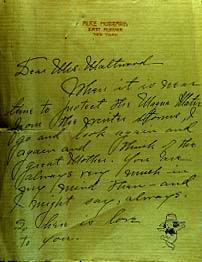 ALICE HUBBARD
EAST AURORA
NEW YORK
Dear Mrs. Maltwood
When it is near
time to protect the Mama Mater
from the winter storms, I
go and look again and
again and think of the
great Mother. You are
always very much in
my mind then – and
I might say, always.
So then is love
to you.